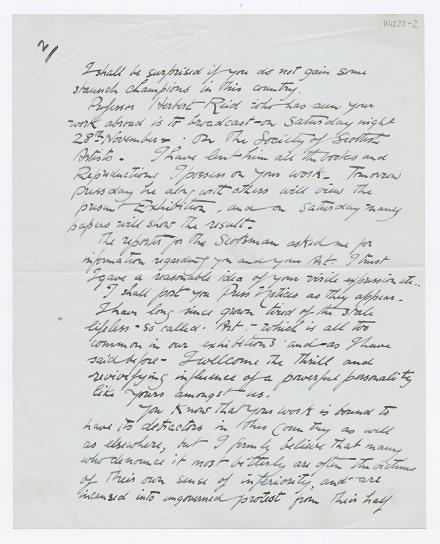 K4227-2
2/
I shall be surprised if you do not gain some
staunch champions in this country.
Professor Herbert Reid who has seen your
work abroad is to broadcast on Saturday night
28th November - on The Society of Scottish
Artists. I have lent him all the books and
Reproductions I possess on your work. Tomorrow
pressday he along with others will view the
present Exhibition, and on Saturday many
papers will show the result.
The reporter for the Scotsman asked me for
information regarding you and your Art. I trust
I gave a reasonable idea of your virile expression etc..
I shall post you Press Notices as they appear.
I have long since grown tired of the stale
lifeless - so called - Art - which is all too
common in our exhibitions and - as I have
said before - I wellcome the thrill and
revivifying influence of a powerful personality
like yours amongst us.
You know that your work is bound to
have its detractors in this Country as well
as elsewhere, but I firmly believe that many
who denounce it most bitterly are often the victims
of their own sense of inferiority, and are
incensed into ungoverned protest from their half